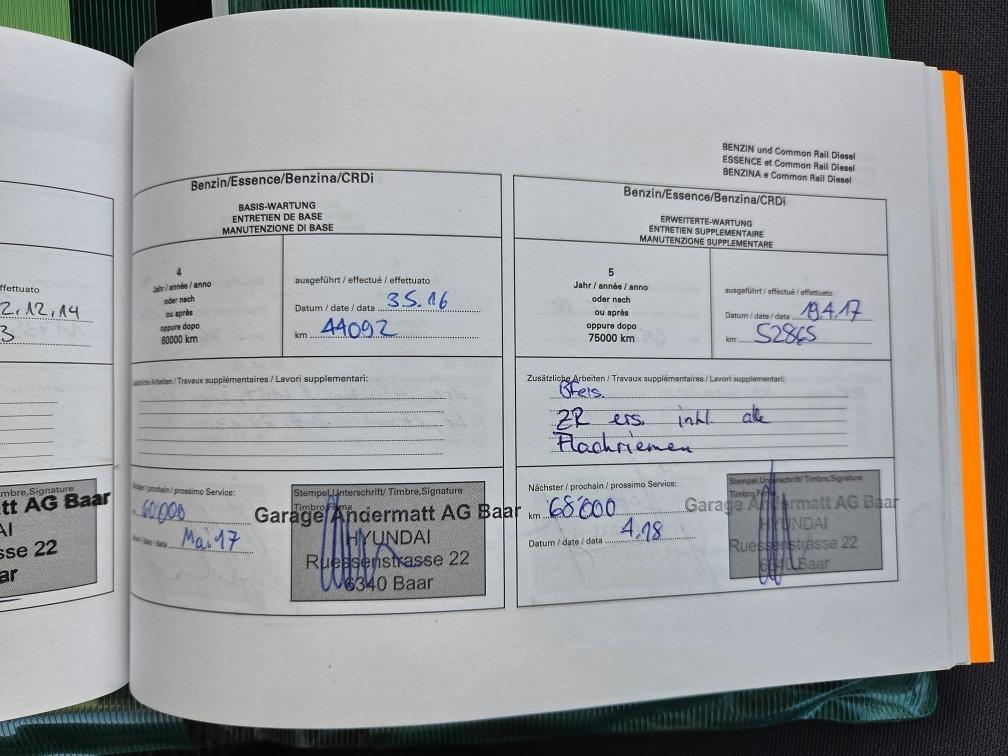 effettuato
2.12.14
3
mbre,Signature
tt AG Baar
AI
sse 22
ar
Benzin/Essence/Benzina/CRDi
BASIS-WARTUNG
ENTRETIEN DE BASE
MANUTENZIONE DI BASE
4
Jahr / année / anno
oder nach
ou après
oppure dopo
60000 km
ausgeführt / effectué / effettuato
Datum / date / data 3.5.16
km 44092
Zusätzliche Arbeiten / Travaux supplémentaires / Lavori supplementari:
/ prochain / prossimo Service:
60'000
/ date / data Mai 17
Stempel,Unterschrift/ Timbre,Signature
Timbro,Firma
Garage Andermatt AG Baar
HYUNDAI
Ruessenstrasse 22
6340 Baar
BENZIN und Common Rail Diesel
ESSENCE et Common Rail Diesel
BENZINA e Common Rail Diesel
Benzin/Essence/Benzina/CRDi
ERWEITERTE-WARTUNG
ENTRETIEN SUPPLEMENTAIRE
MANUTENZIONE SUPPLEMENTARE
5
Jahr / année / anno
oder nach
ou après
oppure dopo
75000 km
ausgeführt / effectué / effettuato
Datum / date / data 19.4.17
km 52865
Zusätzliche Arbeiten / Travaux supplémentaires / Lavori supplementari:
ZR ers. inkl. alle
Flachriemen
Nächster / prochain / prossimo Service:
km 68'000
Datum / date / data 4.18
Stempel,Unterschrift/ Timbre,Signature
Timbro,Firma
Garage Andermatt AG Baar
HYUNDAI
Ruessenstrasse 22
6340 Baar